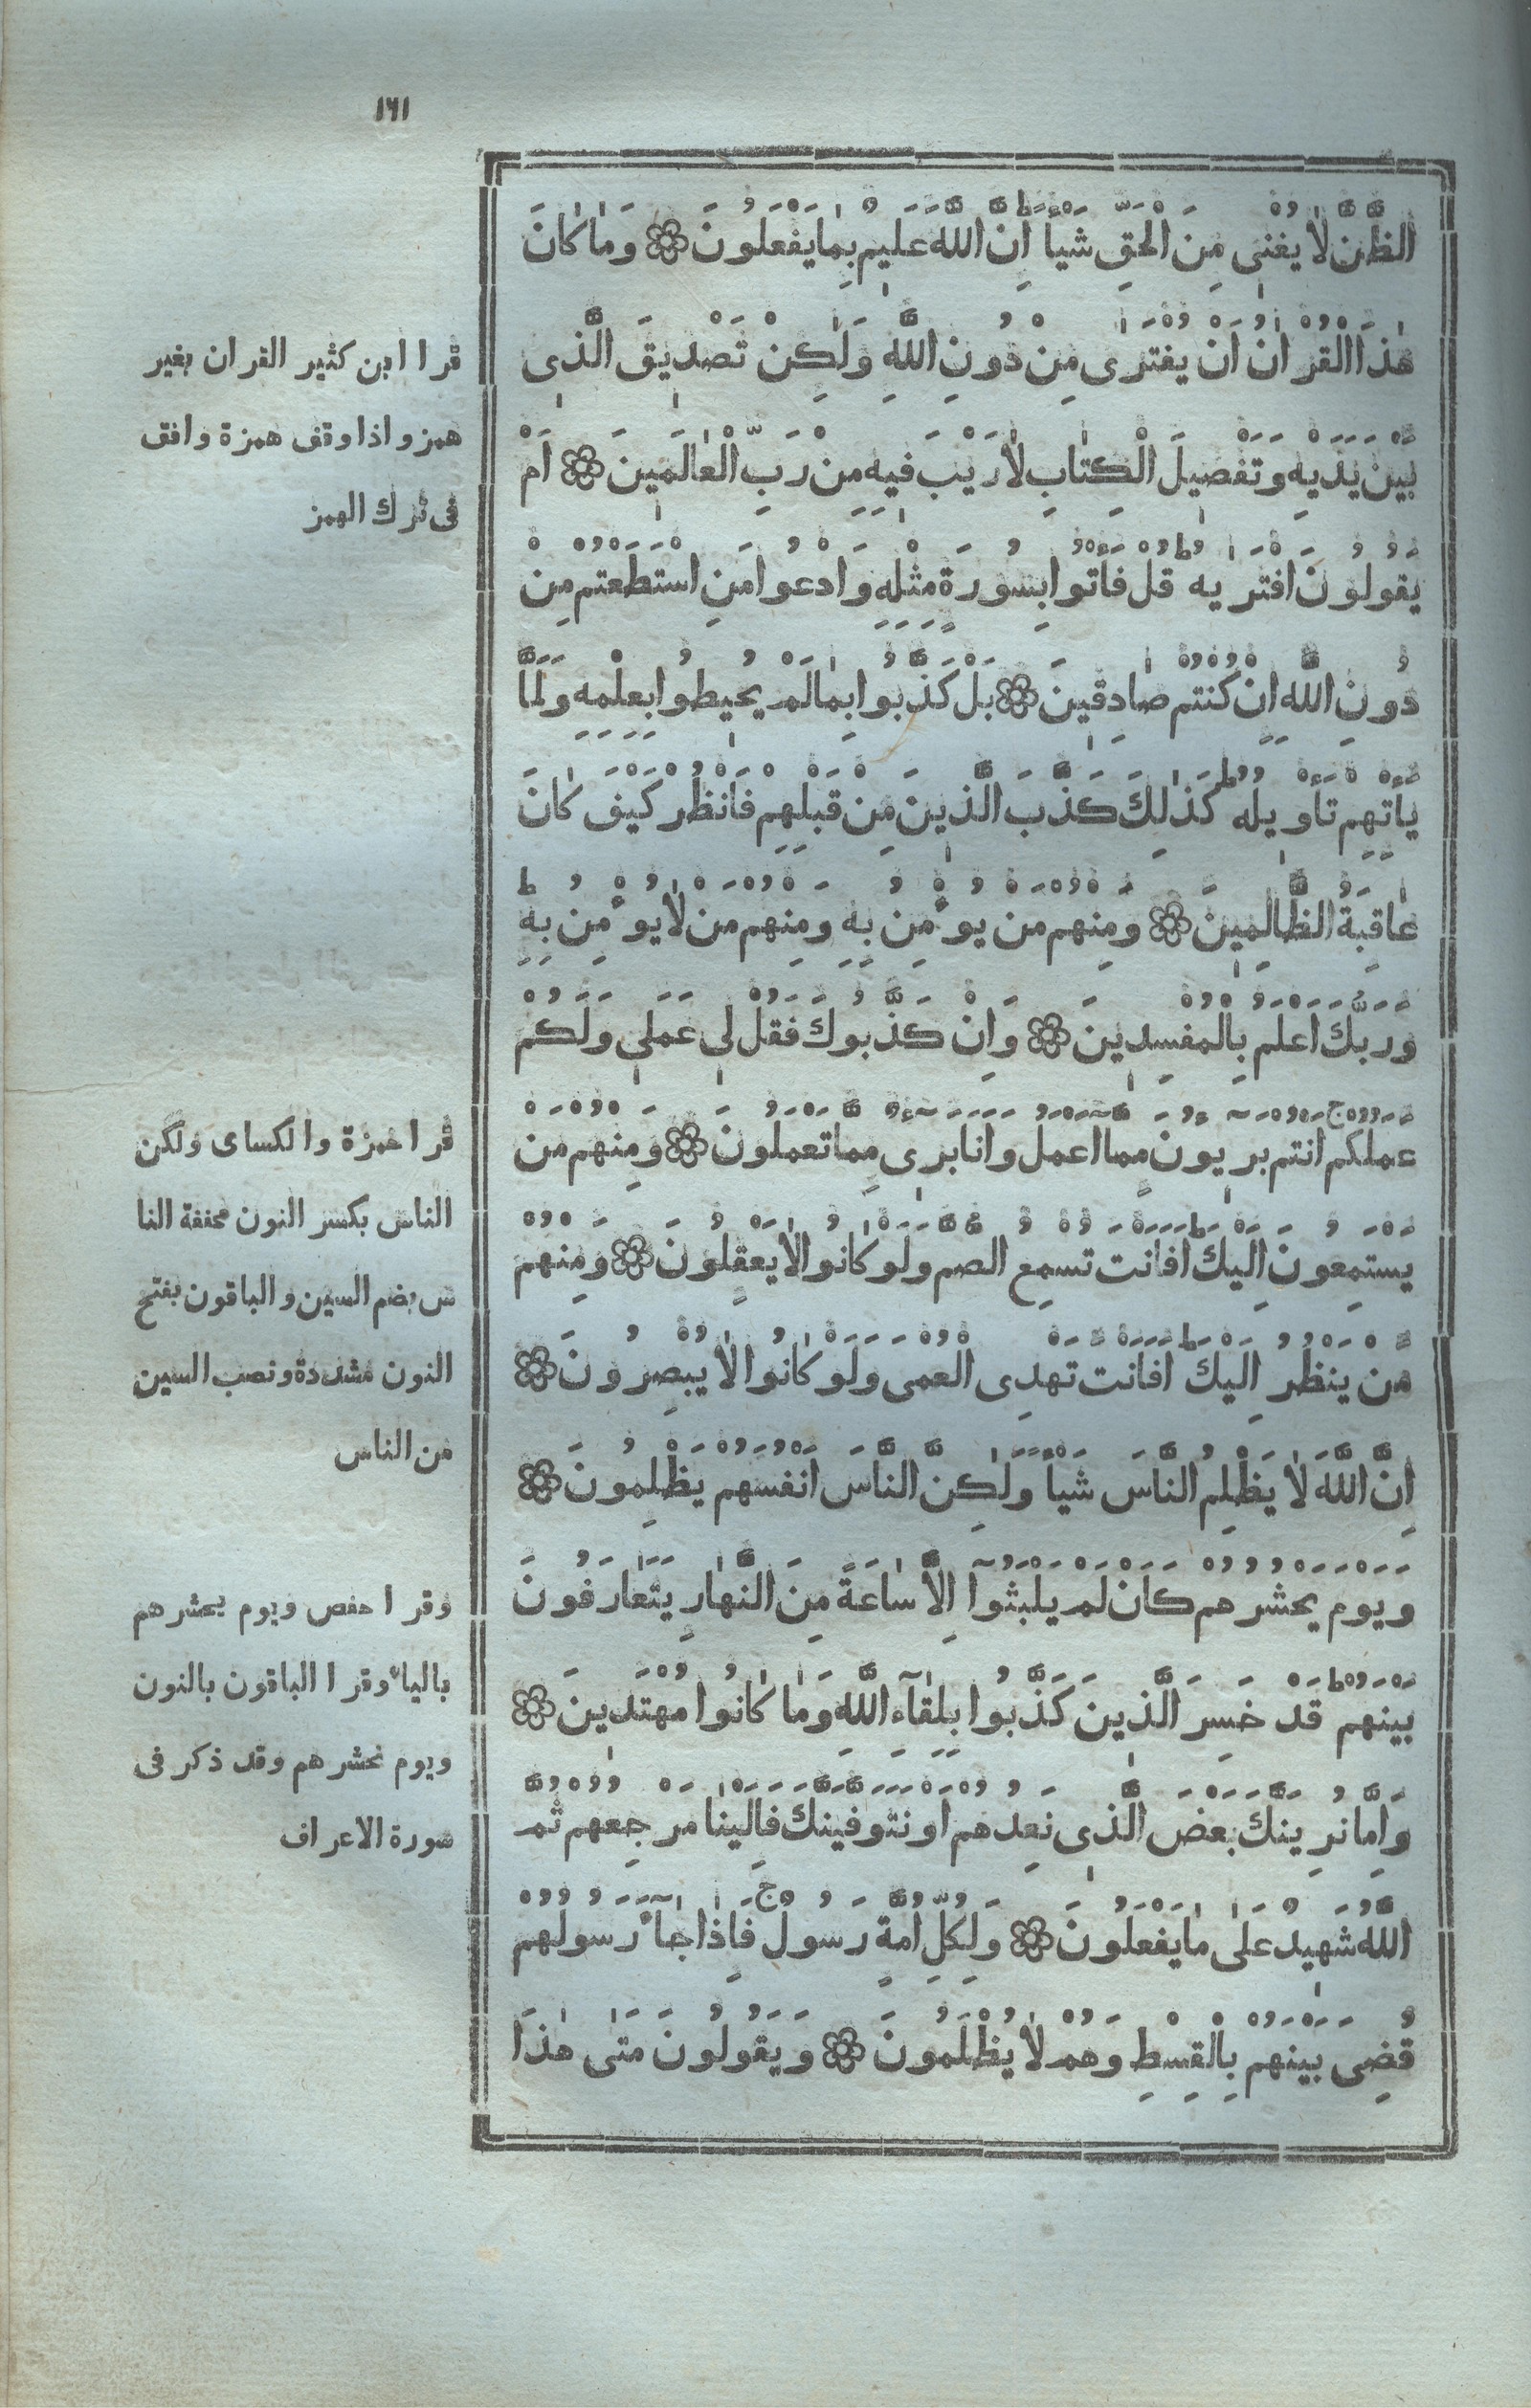 ١٦١
الظَّنَّ لَا يُغْنِى مِنَ الْحَقِّ شَيْأً اِنَّ اللَّهَ عَلِيمٌ بِمَا يَفْعَلُونَ ۞ وَمَا كَانَ
هٰذَا الْقُرْاٰنُ اَنْ يُفْتَرٰى مِنْ دُونِ اللَّهِ وَلٰكِنْ تَصْدِيقَ الَّذِى
بَيْنَ يَدَيْهِ وَتَفْصِيلَ الْكِتٰابِ لَا رَيْبَ فِيهِ مِنْ رَبِّ الْعٰالَمِينَ ۞ اَمْ
يَقُولُونَ افْتَرٰيهُ ط قُلْ فَأْتُوا بِسُورَةٍ مِثْلِهِ وَادْعُوا مَنِ اسْتَطَعْتُمْ مِنْ
دُونِ اللَّهِ اِنْ كُنْتُمْ صَادِقِينَ ۞ بَلْ كَذَّبُوا بِمَا لَمْ يُحِيطُوا بِعِلْمِهِ وَلَمَّا
يَأْتِهِمْ تَأْوِيلُهُ ط كَذٰلِكَ كَذَّبَ الَّذِينَ مِنْ قَبْلِهِمْ فَانْظُرْ كَيْفَ كَانَ
عَاقِبَةُ الظَّالِمِينَ ۞ وَمِنْهُمْ مَنْ يُؤْمِنُ بِهِ وَمِنْهُمْ مَنْ لَا يُؤْمِنُ بِهِ ط
وَرَبُّكَ اَعْلَمُ بِالْمُفْسِدِينَ ۞ وَاِنْ كَذَّبُوكَ فَقُلْ لِى عَمَلِى وَلَكُمْ
عَمَلُكُمْ ج اَنْتُمْ بَرِيؤُنَ مِمَّا اَعْمَلُ وَاَنَا بَرِىءٌ مِمَّا تَعْمَلُونَ ۞ وَمِنْهُمْ مَنْ
يَسْتَمِعُونَ اِلَيْكَ ط اَفَاَنْتَ تُسْمِعُ الصُّمَّ وَلَوْ كَانُوا لَا يَعْقِلُونَ ۞ وَمِنْهُمْ
مَنْ يَنْظُرُ اِلَيْكَ ط اَفَاَنْتَ تَهْدِى الْعُمْىَ وَلَوْ كَانُوا لَا يُبْصِرُونَ ۞
اِنَّ اللَّهَ لَا يَظْلِمُ النَّاسَ شَيْأً وَلٰكِنَّ النَّاسَ اَنْفُسَهُمْ يَظْلِمُونَ ۞
وَيَوْمَ يَحْشُرُهُمْ كَاَنْ لَمْ يَلْبَثُوٓا اِلَّا سَاعَةً مِنَ النَّهَارِ يَتَعَارَفُونَ
بَيْنَهُمْ ط قَدْ خَسِرَ الَّذِينَ كَذَّبُوا بِلِقَآءِ اللَّهِ وَمَا كَانُوا مُهْتَدِينَ ۞
وَاِمَّا نُرِيَنَّكَ بَعْضَ الَّذِى نَعِدُهُمْ اَوْ نَتَوَفَّيَنَّكَ فَاِلَيْنَا مَرْجِعُهُمْ ثُمَّ
اللَّهُ شَهِيدٌ عَلٰى مَا يَفْعَلُونَ ۞ وَلِكُلِّ اُمَّةٍ رَسُولٌ ج فَاِذَا جَآءَ رَسُولُهُمْ
قُضِىَ بَيْنَهُمْ بِالْقِسْطِ وَهُمْ لَا يُظْلَمُونَ ۞ وَيَقُولُونَ مَتٰى هٰذَا
قرا ابن كثير القران بغير
همز واذا وقف همزة وافق
فى ترك الهمز
قرا حمزة والكساى ولكن
الناس بكسر النون مخففة النا
س بضم السين والباقون بفتح
النون مشددة ونصب السين
من الناس
وقرا حفص ويوم يحشرهم
بالياء وقرا الباقون بالنون
ويوم نحشرهم وقد ذكر فى
سورة الاعراف